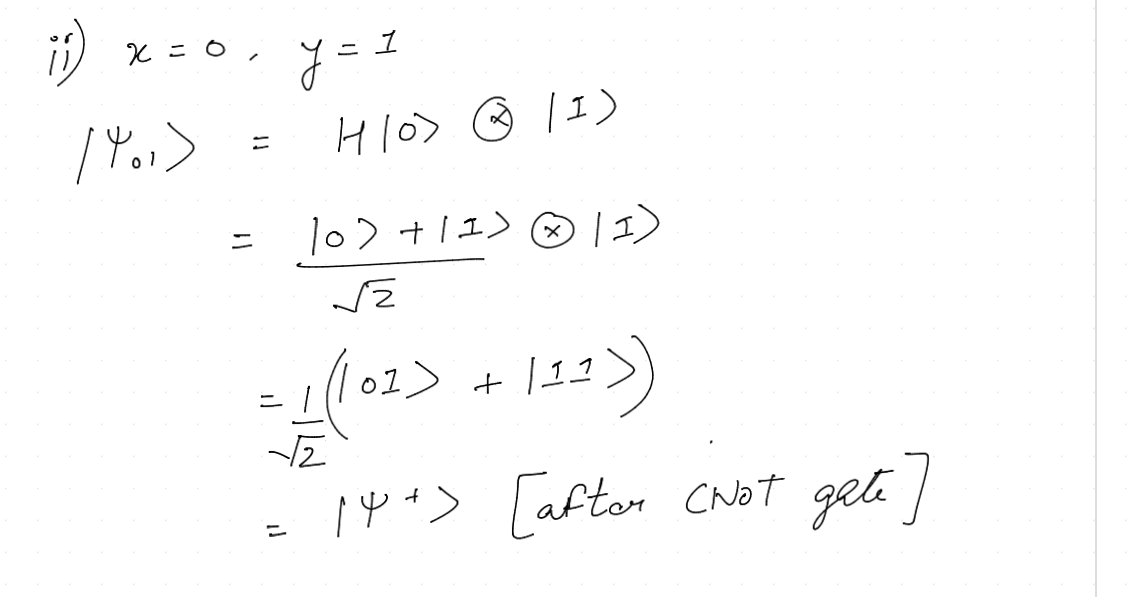 ii) x = 0, y = 1
|Ψ₀₁> = H|0> ⊗ |1>
= |0> + |1> ⊗ |1>
√2
= 1/√2 (|01> + |11>)
= |Ψ⁺> [after CNOT gate]